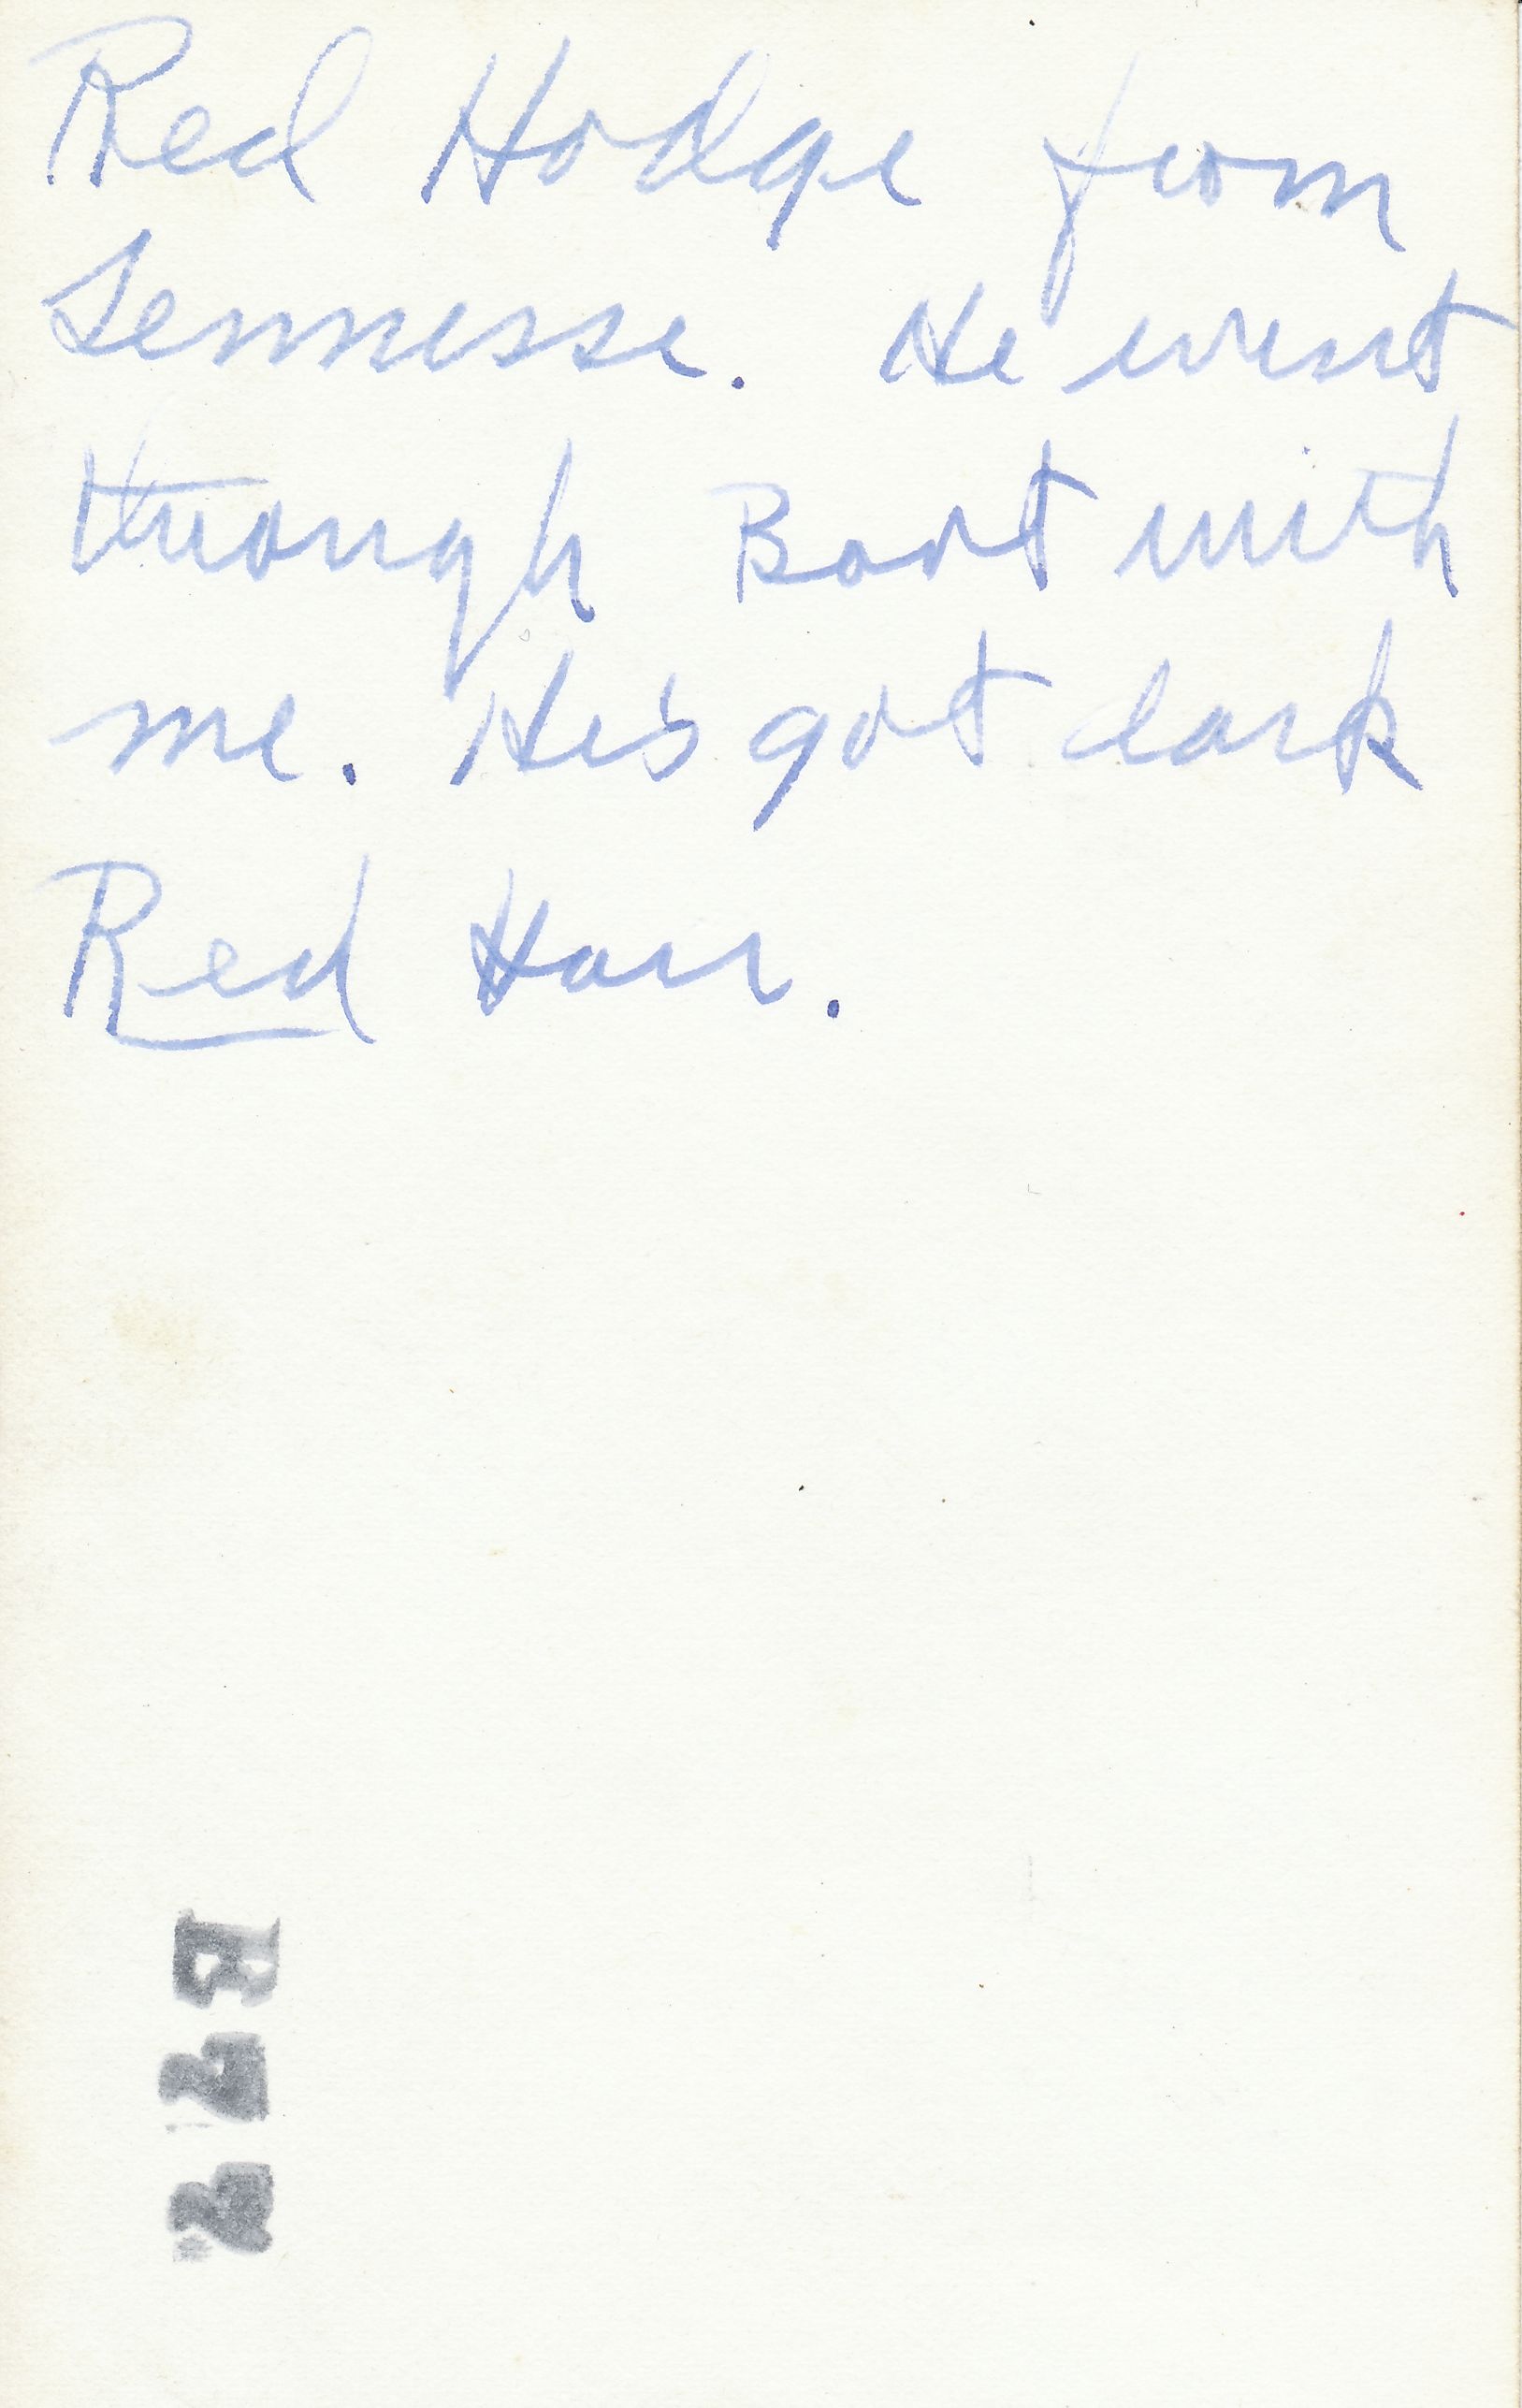 Red Hodge from
Tennesse. He went
through Boot with
me. He's got dark
Red Hair.